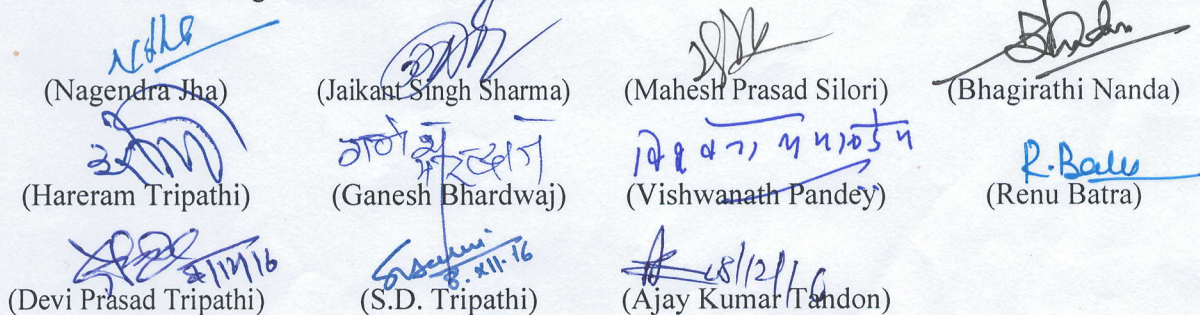 (Nagendra Jha) (Jaikant Singh Sharma) (Mahesh Prasad Silori) (Bhagirathi Nanda)
गणेश भारद्वाज R. Batra
(Hareram Tripathi) (Ganesh Bhardwaj) (Vishwanath Pandey) (Renu Batra)
8/12/16 8.XII.16 08/12/16
(Devi Prasad Tripathi) (S.D. Tripathi) (Ajay Kumar Tandon)